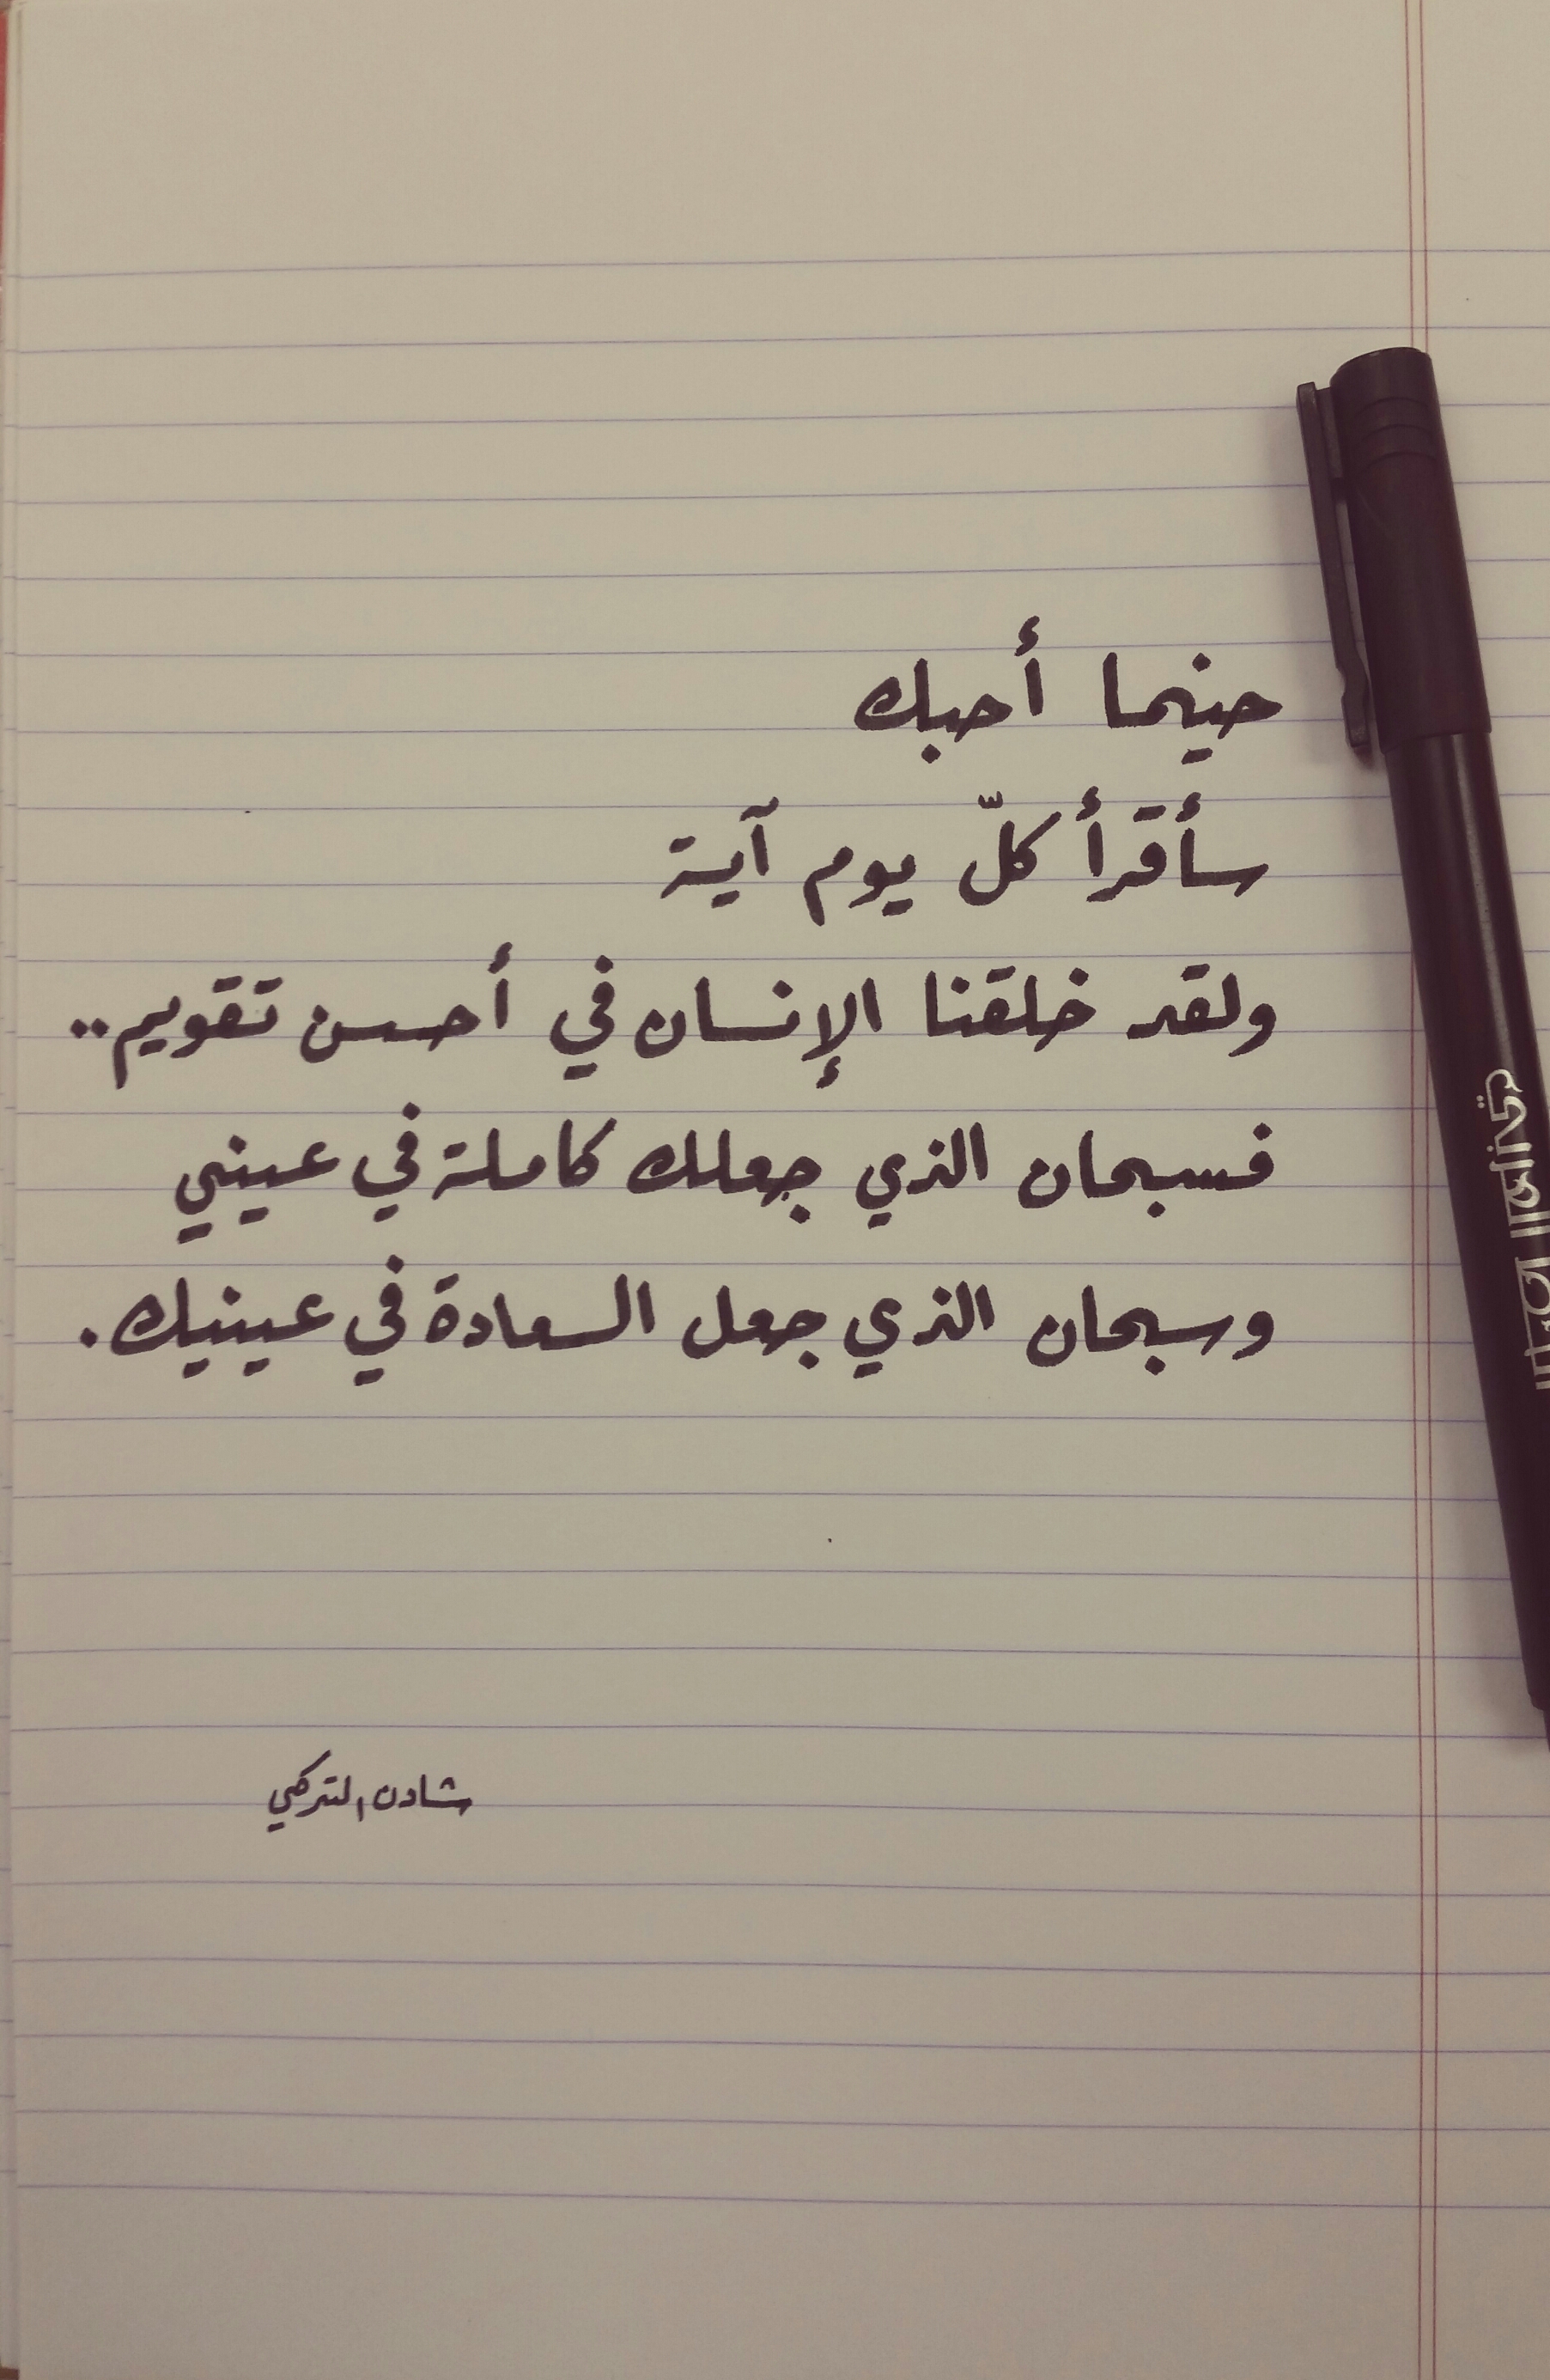 حينما أحبك
سأقرأ كلّ يوم آية
ولقد خلقنا الإنسان في أحسن تقويم..
فسبحان الذي جعلك كاملة في عيني
وسبحان الذي جعل السعادة في عينيك.
شادن التركي